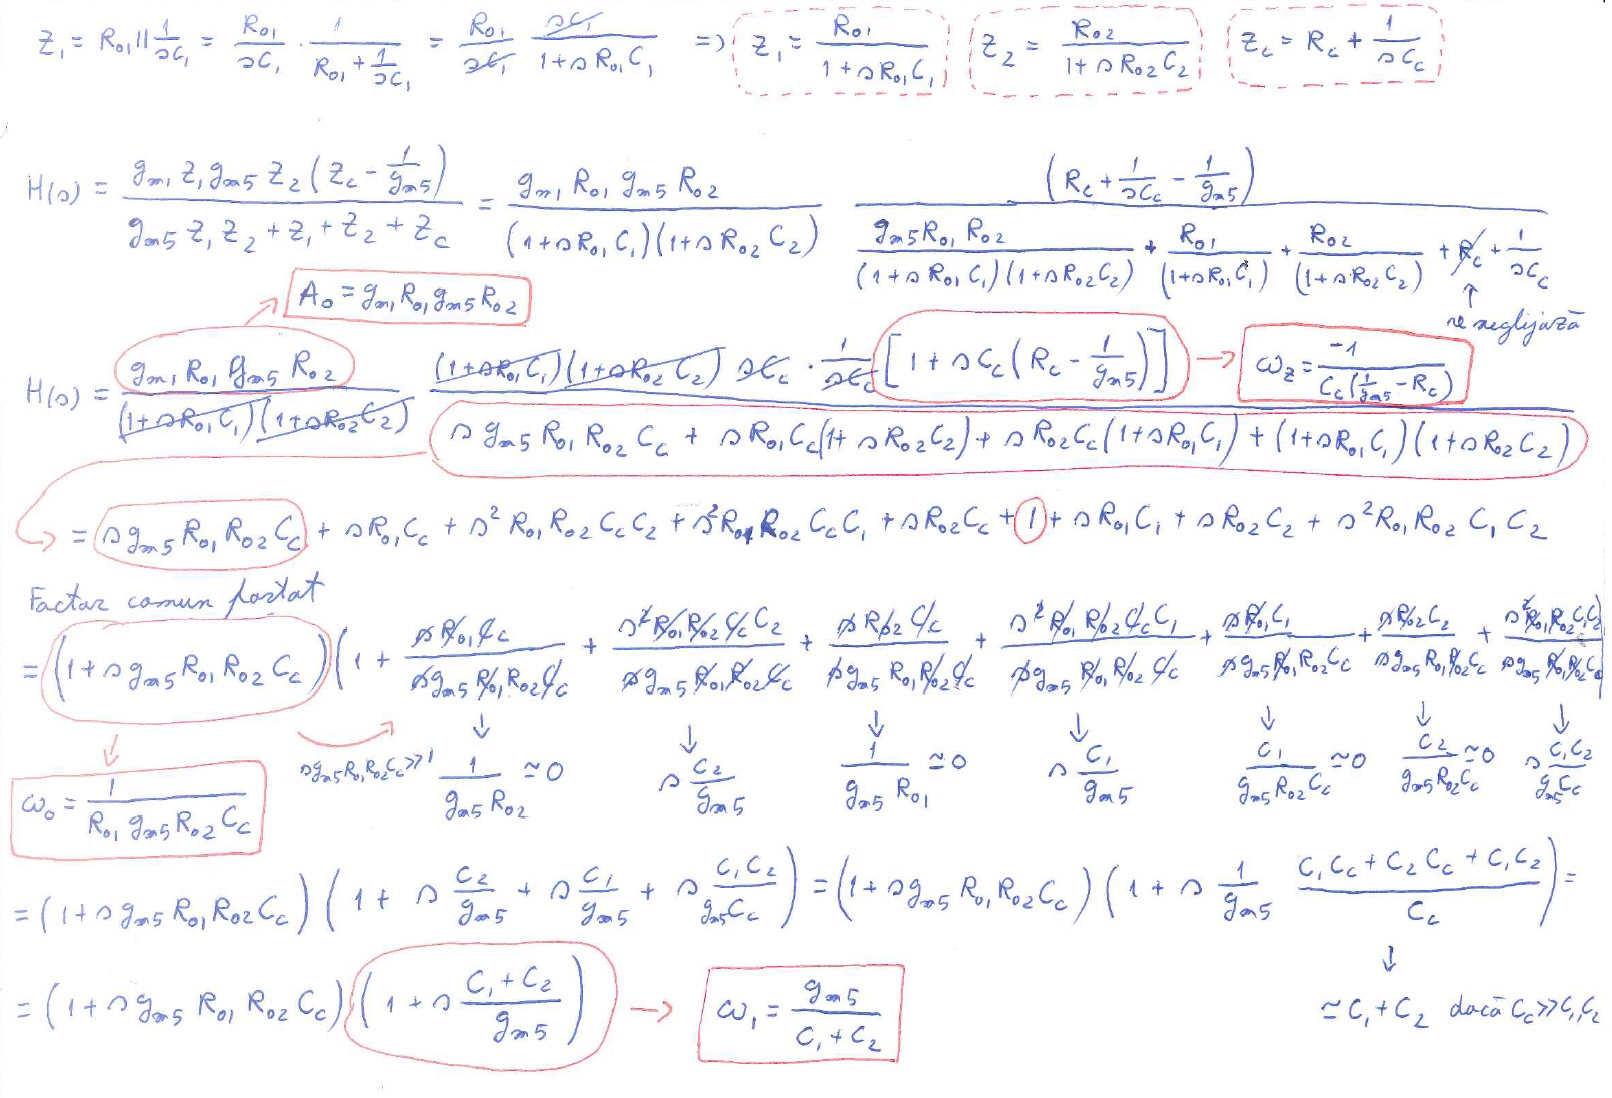 Z₁ = R₀₁ || 1/sC₁ = R₀₁/sC₁ · 1/(R₀₁ + 1/sC₁) = R₀₁/sC₁ · sC₁/(1+sR₀₁C₁) => Z₁ = R₀₁/(1+sR₀₁C₁) Z₂ = R₀₂/(1+sR₀₂C₂) Z_c = R_c + 1/sC_c
H(s) = g_m1 Z₁ g_m5 Z₂ (Z_c - 1/g_m5) / (g_m5 Z₁ Z₂ + Z₁ + Z₂ + Z_c) = g_m1 R₀₁ g_m5 R₀₂ / ((1+sR₀₁C₁)(1+sR₀₂C₂)) (R_c + 1/sC_c - 1/g_m5) / (g_m5 R₀₁ R₀₂/((1+sR₀₁C₁)(1+sR₀₂C₂)) + R₀₁/(1+sR₀₁C₁) + R₀₂/(1+sR₀₂C₂) + R_c + 1/sC_c)
↑ se neglijază
A₀ = g_m1 R₀₁ g_m5 R₀₂
H(s) = g_m1 R₀₁ g_m5 R₀₂ / ((1+sR₀₁C₁)(1+sR₀₂C₂)) (1+sR₀₁C₁)(1+sR₀₂C₂) sC_c · 1/sC_c [1 + sC_c(R_c - 1/g_m5)] / (s g_m5 R₀₁ R₀₂ C_c + sR₀₁C_c(1+sR₀₂C₂) + sR₀₂C_c(1+sR₀₁C₁) + (1+sR₀₁C₁)(1+sR₀₂C₂)) → ω_z = -1/(C_c(1/g_m5 - R_c))
= s g_m5 R₀₁ R₀₂ C_c + sR₀₁C_c + s² R₀₁ R₀₂ C_c C₂ + s² R₀₁ R₀₂ C_c C₁ + sR₀₂C_c + 1 + sR₀₁C₁ + sR₀₂C₂ + s² R₀₁ R₀₂ C₁ C₂
Factor comun fortat
= (1 + s g_m5 R₀₁ R₀₂ C_c)(1 + sR₀₁C_c/(s g_m5 R₀₁ R₀₂ C_c) + s² R₀₁ R₀₂ C_c C₂/(s g_m5 R₀₁ R₀₂ C_c) + sR₀₂C_c/(s g_m5 R₀₁ R₀₂ C_c) + s² R₀₁ R₀₂ C_c C₁/(s g_m5 R₀₁ R₀₂ C_c) + sR₀₁C₁/(s g_m5 R₀₁ R₀₂ C_c) + sR₀₂C₂/(s g_m5 R₀₁ R₀₂ C_c) + s² R₀₁ R₀₂ C₁ C₂/(s g_m5 R₀₁ R₀₂ C_c))
s g_m5 R₀₁ R₀₂ C_c >> 1 1/(g_m5 R₀₂) ≃ 0 s C₂/g_m5 1/(g_m5 R₀₁) ≃ 0 s C₁/g_m5 C₁/(g_m5 R₀₂ C_c) ≃ 0 C₂/(g_m5 R₀₂ C_c) ≃ 0 s C₁C₂/(g_m5 C_c)
ω₀ = 1/(R₀₁ g_m5 R₀₂ C_c)
= (1 + s g_m5 R₀₁ R₀₂ C_c)(1 + s C₂/g_m5 + s C₁/g_m5 + s C₁C₂/(g_m5 C_c)) = (1 + s g_m5 R₀₁ R₀₂ C_c)(1 + s 1/g_m5 (C₁C_c + C₂C_c + C₁C₂)/C_c) =
= (1 + s g_m5 R₀₁ R₀₂ C_c)(1 + s (C₁ + C₂)/g_m5) → ω₁ = g_m5/(C₁ + C₂) ≃ C₁ + C₂ dacă C_c >> C₁, C₂